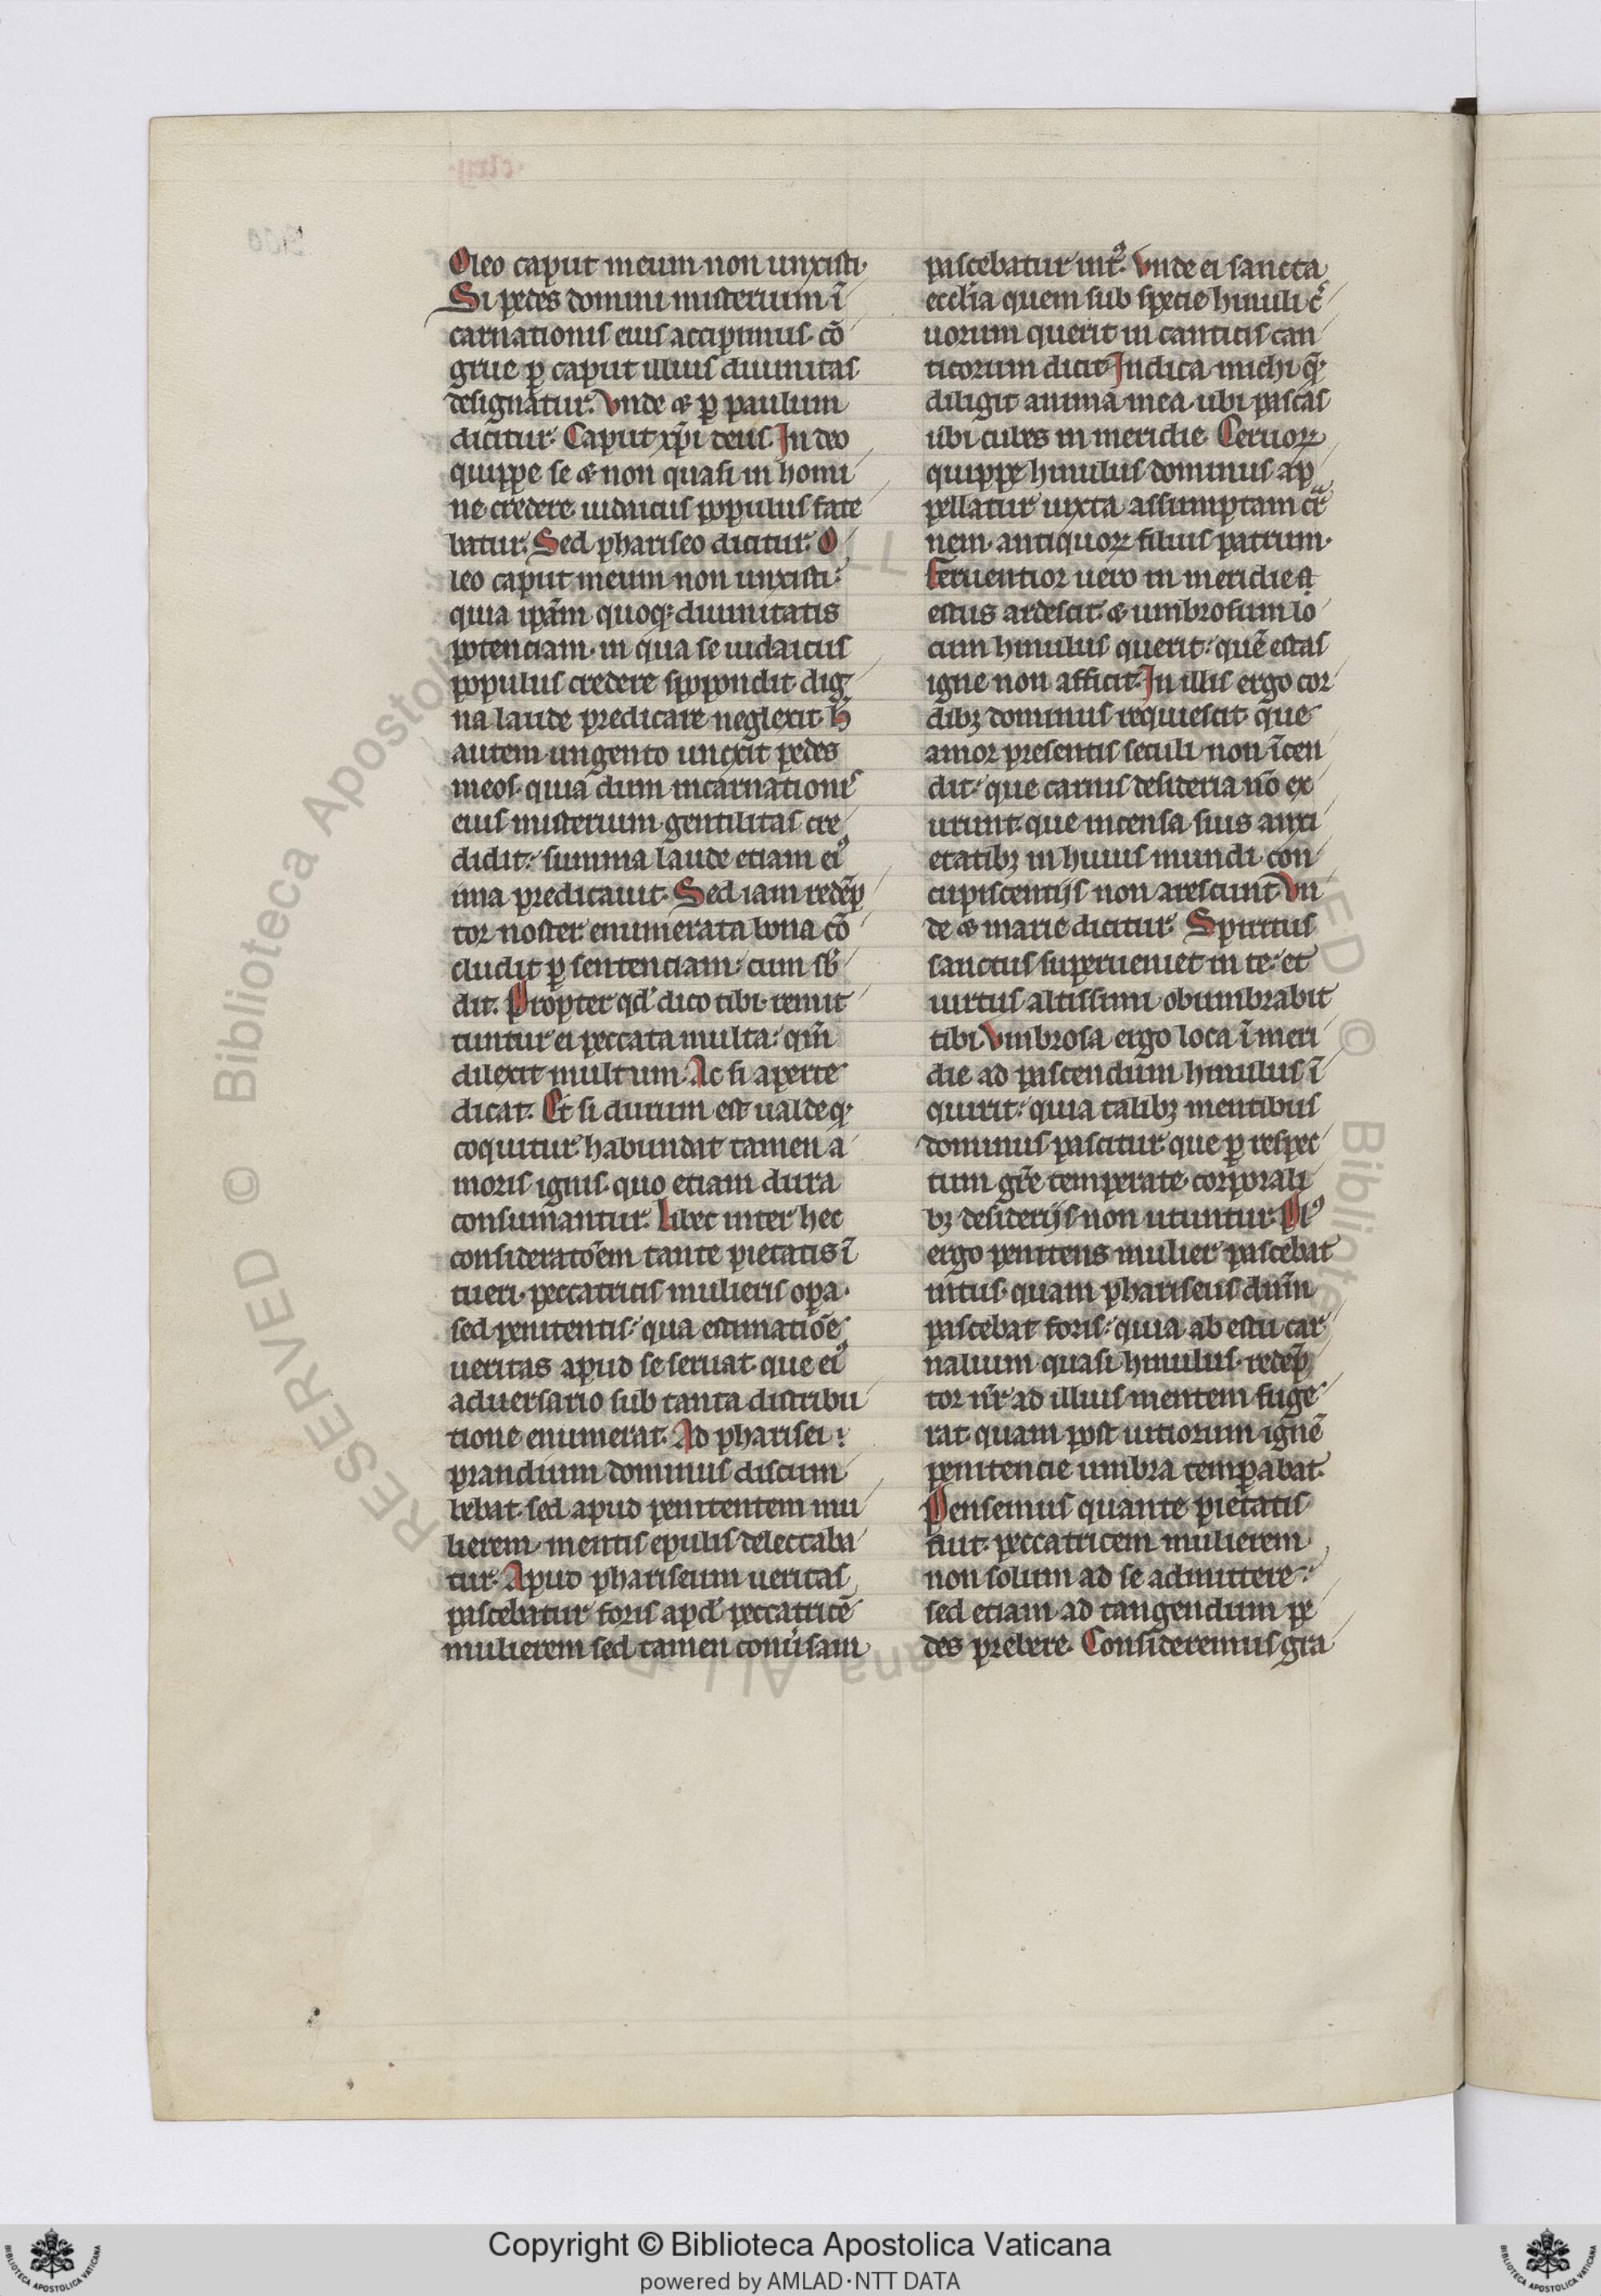 Oleo caput meum non unxisti·
Si pedes domini misterium ī
carnationis eius accipimus· cō
grue ꝑ caput illius diuinitas
designatur. Vnde ⁊ ꝑ paulum
dicitur· Caput xp̄i deus. In deo
quippe se ⁊ non quasi in homi
ne credere iudaicus populus fate
batur. Sed phariseo dicitur. O
leo caput meum non unxisti:
quia ip̄am quoqꝫ diuinitatis
potenciam· in qua se iudaicus
populus credere spopondit dig
na laude predicare neglexit· h̄
autem ungento unxit pedes
meos· quia dum incarnationis
eius misterium gentilitas cre
didit: summa laude etiam ei᷒
ima predicauit. Sed iam redēp
tor noster enumerata bona cō
cludit ꝑ sentenciam: cum sb̄
dit. Propter qd̓ dico tibi· remit
tuntur ei peccata multa: qm̄
dilexit multum. Ac si aperte
dicat. Et si durum est ualde qꝫ
coquitur habundat tamen a
moris ignis· quo etiam dura
consumantur. Libet inter hec
consideratōem tante pietatis ī
tueri· peccatricis mulieris oꝑa·
sed penitentis: qua estimatiōe
ueritas apud se seruat que ei᷒
aduersario sub tanta distribu
tione enumerat. Ad pharisei
prandium dominus discum
bebat· sed apud penitentem mu
lierem· mentis epulis delectaba
tur. Apud phariseum ueritas
pascebatur foris apd̓ peccatricē
mulierem sed tamen conuersam
pascebatur int᷒. Vnde ei sancta
eccl̄ia quem sub specie hinuli c̓
uorum querit in canticis can
ticorum dicit· Indica michi q̄
diligit anima mea ubi pascas
ubi cubes in meridie. Ceruoꝝ
quippe hinulus dominus ap
pellatur iuxta assumptam car
nem· antiquoꝝ filius patrum·
Feruentior uero in meridie
estus ardescit· ⁊ umbrosum lo
cum hinulus querit: quē estas
igne non afficit· In illis ergo cor
dibꝫ dominus requiescit· que
amor presentis seculi non īcen
dit: que carnis desideria nō ex
urunt· que incensa suis anxi
etatibꝫ in huius mundi con
cupiscentijs non arescunt· Vn
de ⁊ marie dicitur. Spiritus
sanctus superueniet in te: et
uirtus altissimi obumbrabit
tibi Vmbrosa ergo loca ī meri
die ad pascendum hinulus ī
quirit: quia talibꝫ mentibus
dominus pascitur· que ꝑ respec
tum gr̄e temperate· corporali
bꝫ desiderijs non utuntur. Pl᷒
ergo penitens mulier pascebat
intus· quam phariseus dn̄m
pascebat foris: quia ab estu car
nalium quasi hinulus· redēp
tor nr̄ ad illius mentem fuge
rat quam post uitiorum ignē
penitencie umbra temꝑabat.
Pensemus quante pietatis
fuit· peccatricem mulierem
non solum ad se admittere:
sed etiam ad tangendum pe
des prebere. Consideremus gra
Copyright © Biblioteca Apostolica Vaticana
powered by AMLAD·NTT DATA